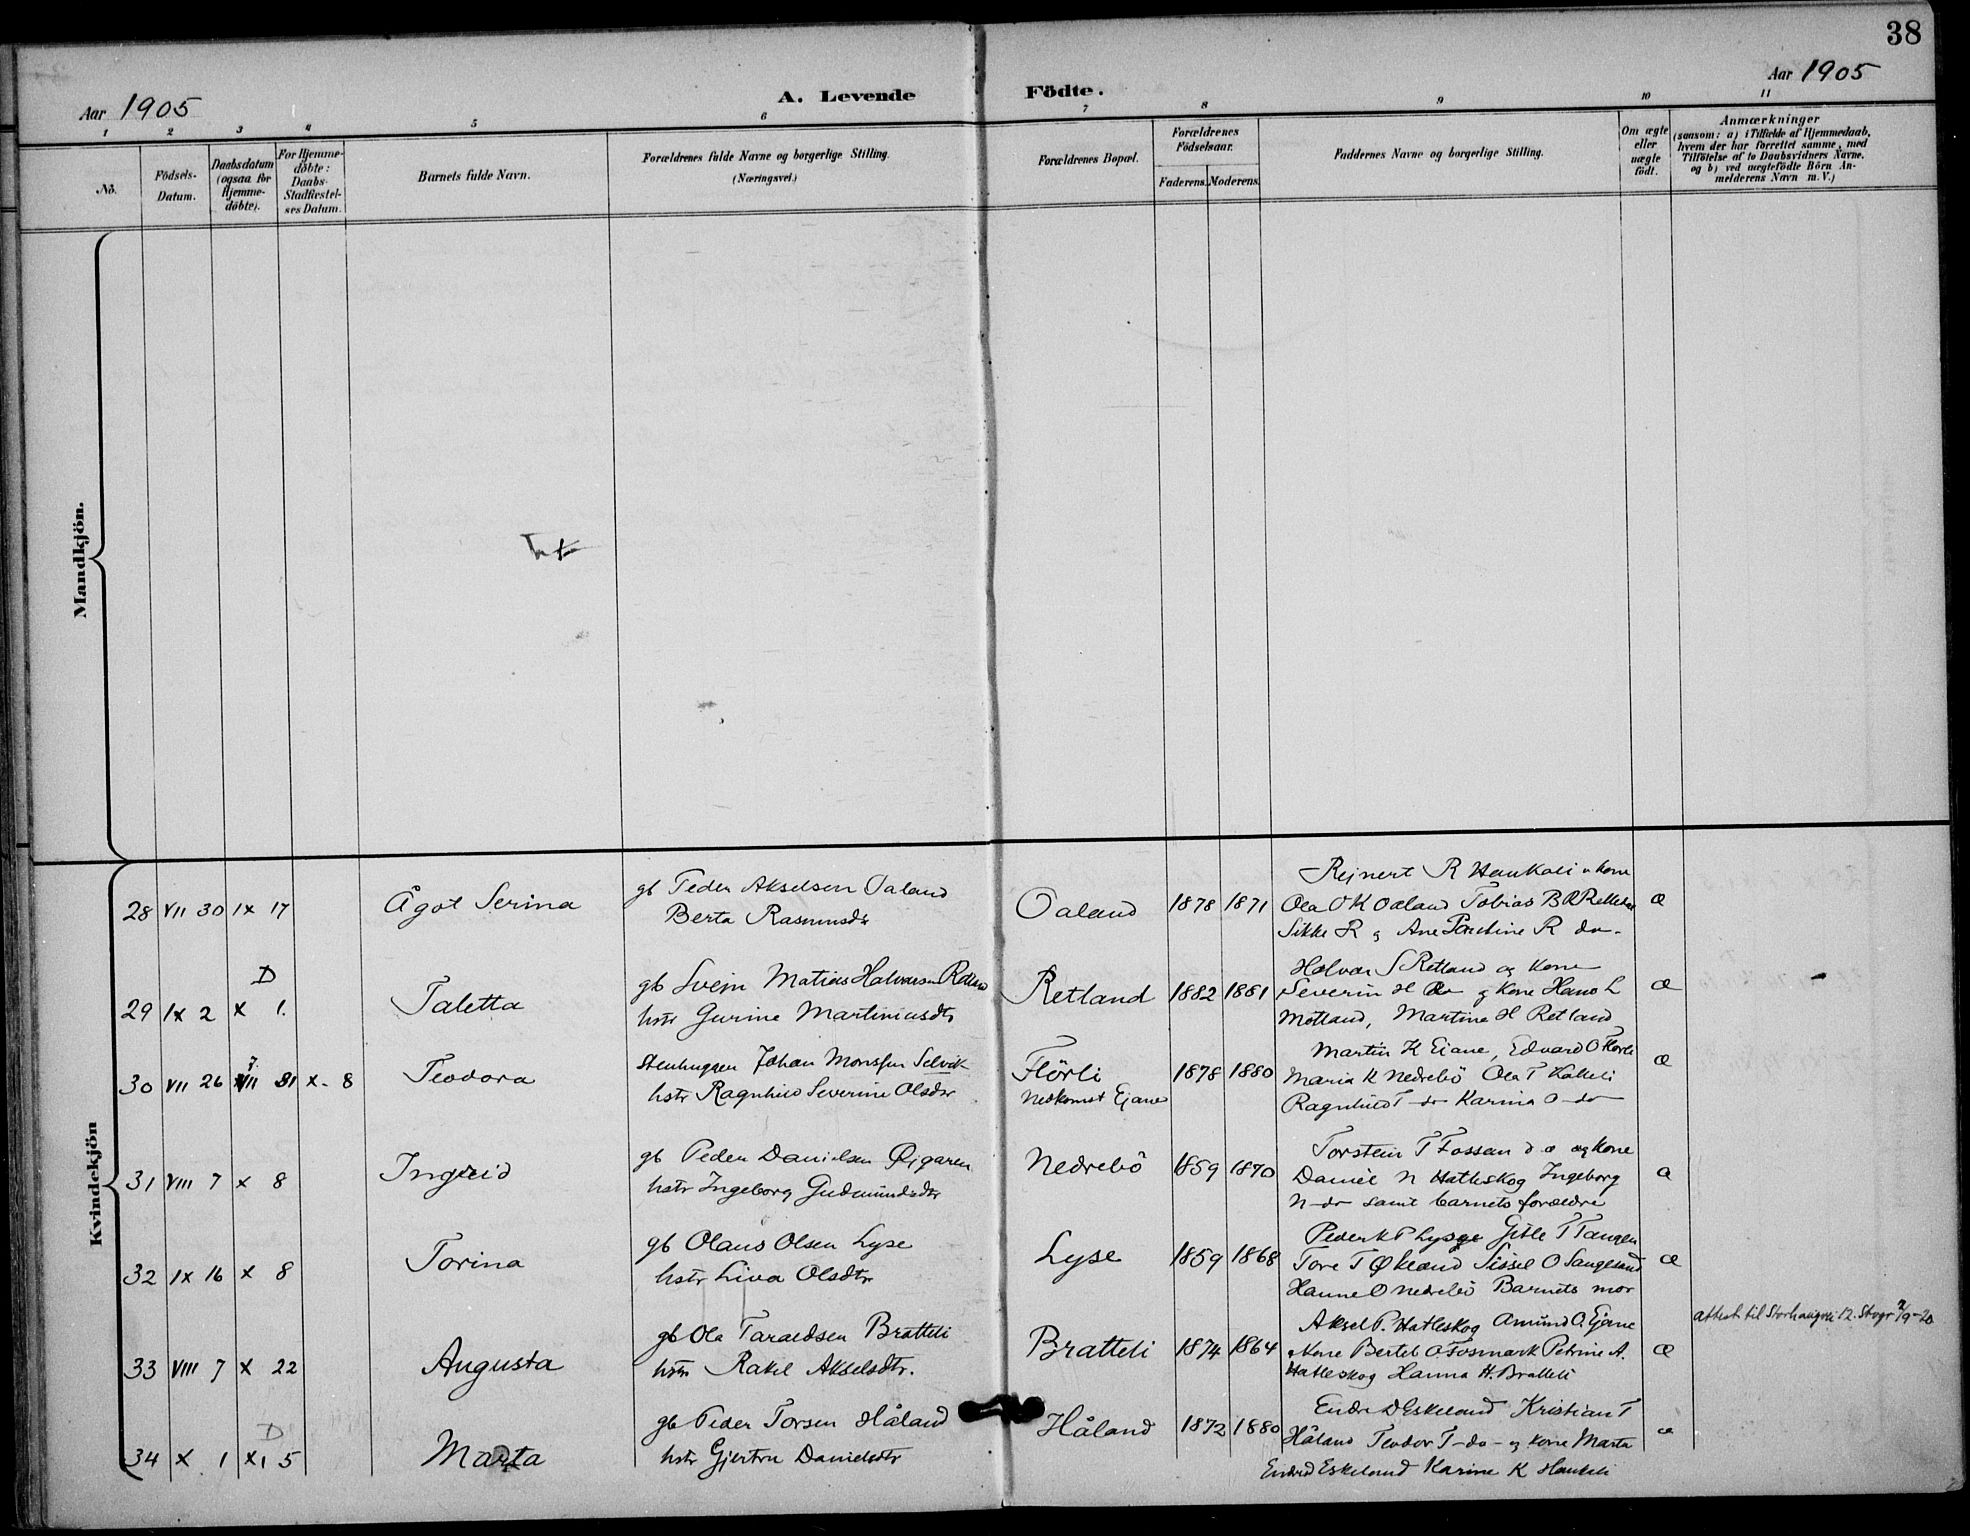 38
Aar 1905
A. Levende Födte.
Aar 1905
1 2 3 4 5 6 7 8 9 10 11
Nō.
Födsels-Datum.
Daabsdatum (ogsaa for Hjemme-döbte).
For Hjemme-döbte: Daabs-Stadfæstel-ses Datum.
Barnets fulde Navn.
Forældrenes fulde Navne og borgerlige Stilling.
(Næringsvei.)
Forældrenes Bopæl.
Forældrenes Födselsaar.
Faderens. Moderens.
Faddernes Navne og borgerlige Stilling.
Om ægte eller uægte födt.
Anmærkninger
(saasom: a) i Tilfælde af Hjemmedaab,
hvem der har forrettet samme, med
Tilföielse af to Daabsvidners Navne,
og b) ved uægtefödte Börn An-
melderens Navn m. V.)
Mandkjön.
Kvindekjön
28 VII 30 IX 17 Ågot Serina
gb Peder Akselsen Oaland
Berta Rasmusdtr
Oaland 1878 1871
Reinert R Haukali u kone
Ola O K Oaland Tobias B R
Sikke R g Ane R do.
æ
D
29 IX 2 X 1. Taletta
gb Svein Matias Halvorsen Retland
hstr Gurine Martiniusdtr
Retland 1882 1881
Halvor S Retland og kone
Severin H do g kone Hans L
Motland, Martine H Retland
æ
30 VII 26 VII 31 X 8 Teodora
Stenhuggen Johan Monsen Selvik
hstr Ragnhild Severine Olsdtr
Flörli
Nedkomst Eiane
1878 1880
Martin K Eiane, Edvard O Flörli
Maria K Nedrebö Ola T Kalleli
Ragnhild T do Karina O do
æ
31 VIII 7 X 8 Ingrid
gb Peder Danielsen Øigaren
hstr Ingeborg Gudmundsdtr
Nedrebö 1859 1870
Torstein T Fossan og kone
Daniel N Hatleskog Ingeborg
N do samt barnets foreldre
æ
32 IX 16 X 8 Torina
gb Olaus Olsen Lyse
hstr Liva Olsdtr
Lyse 1859 1868
Peder K P Lyse Gitle T Tangen
Tore T Økland Sissel O Sangesand
Hanne O Nedrebö Barnets mor
æ
33 VIII 7 X 22 Augusta
gb Ola Taraldsen Bratteli
hstr Rakel Akselsdtr.
Bratteli 1874 1864
Aksel P. Hatleskog Amund O. Ejane
Kone Bertel O Fosmark Petrine A.
Hatleskog Hanna H. Bratteli
æ
attest til Storhaugvei 12. Stvgr 2/9-20
D
34 X 1 XI 5 Marta
gb Peder Torsen Håland
hstr Gjertru Danielsdtr
Håland 1872 1880
Endre D Eskeland Kristian T
Håland Teodor T do - g kone Marta
Eskeland Karine K Haukali
æ